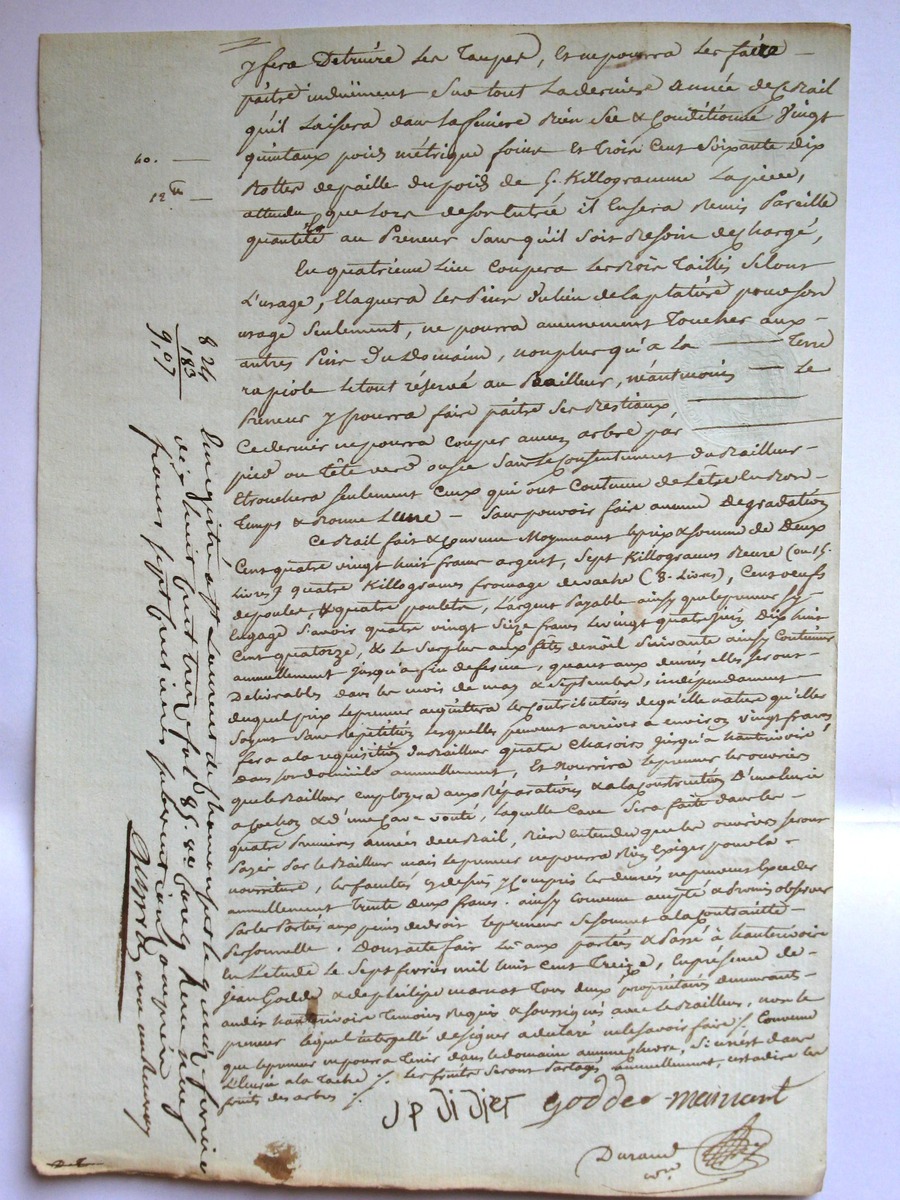 y fera Detruire les Taupes, et ne pourra les faire
paitre induement sur tout La derniere année de ce Bail
qu'il Laissera dans la finiere Bien sec & Conditionné Vingt
quintaux poids métrique foins et Trois Cent Soixante Dix
Bottes de paille du poids de 5. Killogramme La piece,
attendu que Lors de son Entrée il En sera Remis Pareille
quantité au Preneur Sans qu'il Soit Besoin de chargé,
En quatrieme Lieu Coupera Les Bois Taillis Selont
L'usage, Elaguera Les Pins du Lieu de la platiere pour son
usage Seulement, ne pourra aucunement Toucher aux
autres Pins Du Domaine, non plus qu'a La Terre
rapiole Le tout réservé au Bailleur, néantmoins Le
Preneur y pourra faire paitre Ses Bestiaux,
Ce dernier ne pourra couper aucun arbre par
pied ou tête verd ou sec Sans Le Consentement du Bailleur
Et Seulement Ceux qui ont Coutume de L'être En Bon
Temps & Bonne Lune - Sans pouvoir faire aucune Dégradation
Ce Bail fait & Convenu Moyennant Le prix & somme de Deux
Cent quatre vingt huit francs argent, Sept Killogrames Beure (ou 15.
Livres) quatre Killogrames fromage de vache (8. Livres), Cent oeufs
de poules, & quatre poulets, L'argent Payable ainsy que le preneur s'y
Engage Sçavoir quatre vingt Seize francs Le vingt quatre juin Dix huit
Cent quatorze, & Le Surplus aux fêtes de noël Suivante ainsy Continuer
annuellement jusqu'a fin de ferme, quant aux denrées elles Seront
Délivrables dans les mois de may & Septembre, indépendament
duquel prix Le preneur acquittera Les Contributions de qu'elle nature qu'elles
Soyent Sans Répétition Lesquelles peuvent arriver à environ vingt francs
fera a la requisition du Bailleur quatre Charois jusqu'a hauterivoire
dans son domicile annuellement, Et nourrira Le preneur Les ouvriers
que le Bailleur employera aux Réparations & a la Construction D'une Ecurie
a Cochon & d'une Cave vouté, Laquelle Cave Sera faite dans les
quatre Premieres années de ce Bail, Bien entendu que les ouvriers Seront
Payés Par le Bailleur mais Le preneur ne pourra Rien Exiger pour la
nourriture, Les faculés cy dessus y Compris les denrées ne peuvent Excéder
annuellement Trente deux francs. ainsy Convenu accepté & Promis observer
Par les Partés aux peines de droit Le preneur Se Soumet a la Contrainte
Personnelle. Dont acte fait Lu aux parties & Passé à hauterivoire
En L'étude Le Sept fevrier mil huit Cent Treize, En présence de
jean Goddé & de philipe marnat Tous deux propriétaires demeurants
audit hauterivoire Temoins Requis & Soussignés avec Le Bailleur, non le
preneur Lequel interpellé de signer a declaré ne le savoir faire /. Convenu
que le preneur ne pourra Tenir dans le domaine aucune chevre, Si ce n'est dans
L'Ecurie a la Tache /. Les fruits Seront Partagés annuellement, cest adire les
fruits des arbres /.
J P Didier Goddes Marnant
Durand
40.
12
824
183
9,07
Enregistré a St Laurent de Chamousset le quinze fevrier
dix huit Cent treize fol 85. Reçu neuf
francs sept Centimes